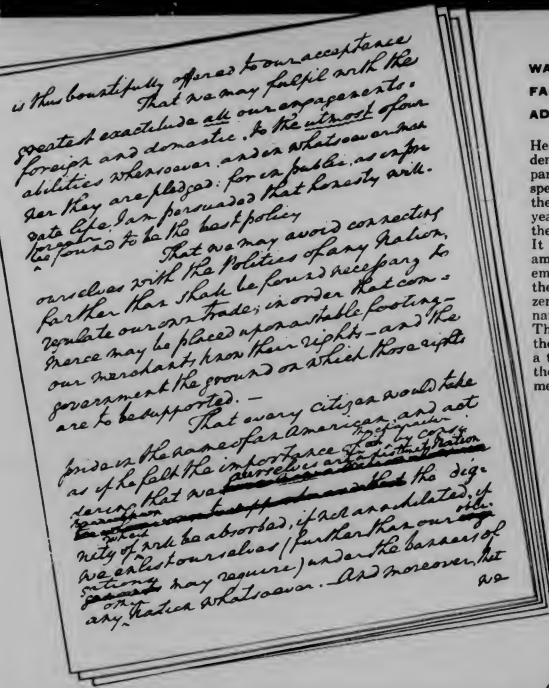 is thus bountifully offered to our acceptance
That we may fulfil with the
greatest exactitude all our engagements,
foreign and domestic, to the utmost of our
abilities whensoever, and in whatsoever man
ner they are pledged: for in public, as in pri
vate life, I am persuaded that honesty will
forever
be found to be the best policy
That we may avoid connecting
ourselves with the Politics of any Nation,
farther than shall be found necessary to
regulate our own trade; in order that com=
merce may be placed upon a stable footing—
our merchants, know their rights—and the
government the ground on which those rights
are to be supported.—
That every citizen would take
pride in the name of an American, and act
as if he felt the importance of the character by consi=
dering that we ourselves are a distinct Nation
the dig=
which
nity of will be absorbed, if not annihilated, if
we enlist ourselves (further than our obli=
gations may require) under the banners of
other
any Nation whatsoever.—And moreover, that
we
WA
FA
AD
He
den
par
spe
the
yea
the
It
am
em
the
zen
nat
Th
the
a t
the
me